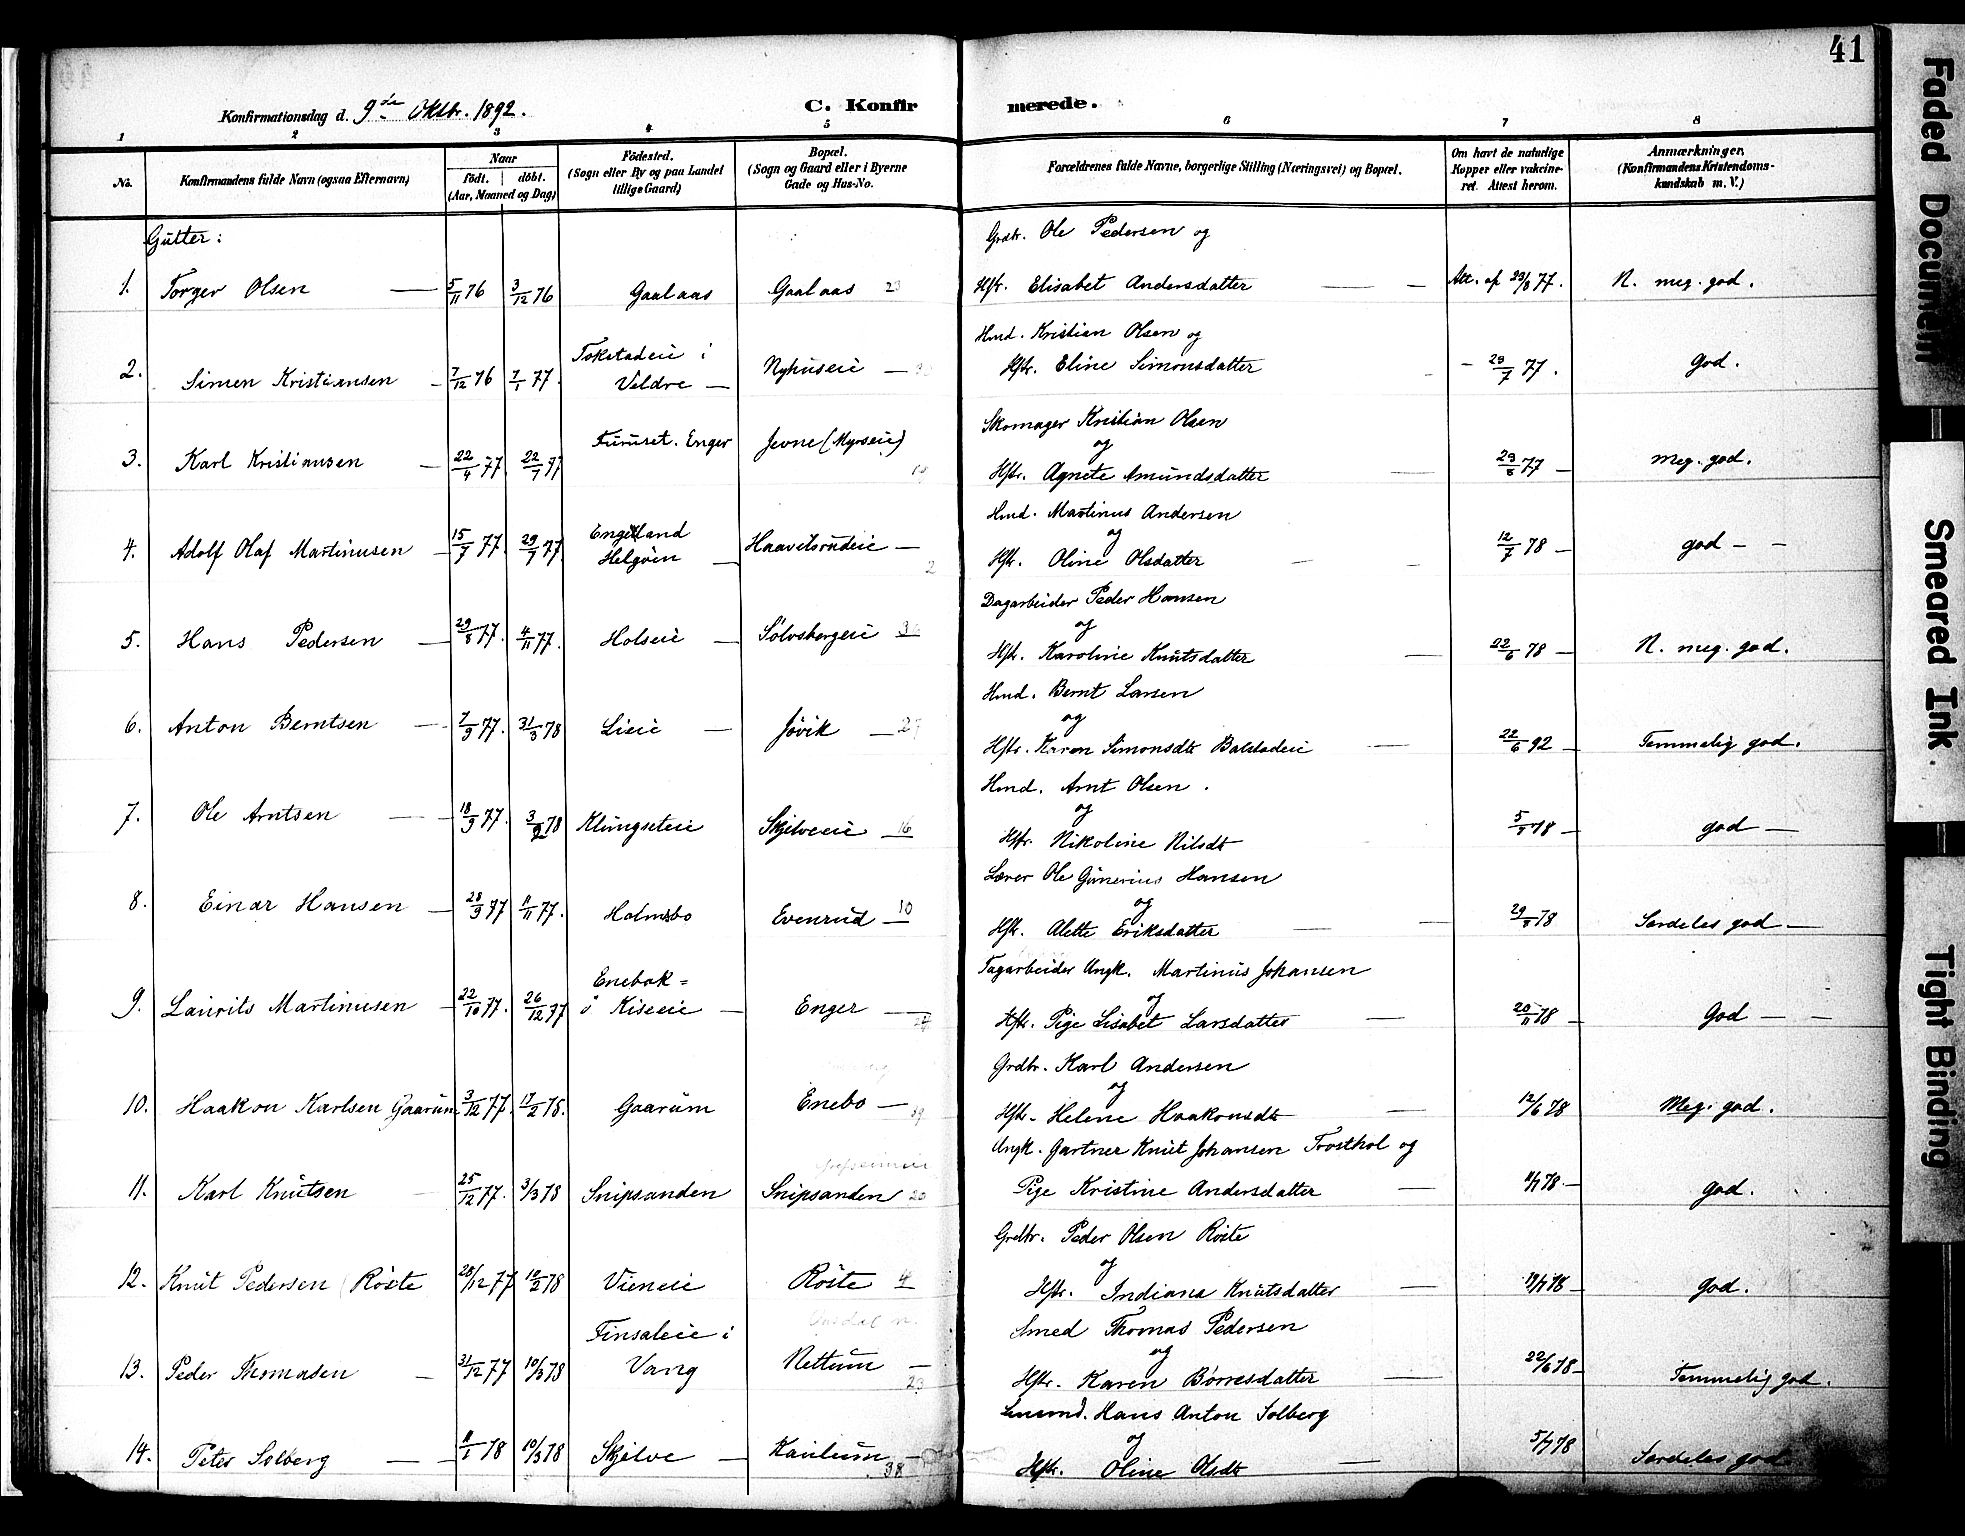 41
Konfirmationsdag d. 9de Oktbr. 1892.
C. Konfirmerede.
1 2 3 4 5 6 7 8
No. Konfirmandens fulde Navn (ogsaa Efternavn) Naar født. døbt. (Aar, Maaned og Dag) Fødested. (Sogn eller By og paa Landet tillige Gaard) Bopæl. (Sogn og Gaard eller i Byerne Gade og Hus-No. Forældrenes fulde Navne, borgerlige Stilling (Næringsvei) og Bopæl. Om havt de naturlige Kopper eller vakcineret. Attest herom. Anmærkninger. (Konfirmandens Kristendomskundskab m. V.)
Gutter:
Grdbr. Ole Pedersen og
1. Torger Olsen 5/11 76 3/12 76 Gaalaas Gaalaas 23 Hstr. Elisabet Andersdatter Att. af 23/8 77. N. meg. god.
Hmd. Kristian Olsen og
2. Simen Kristiansen 7/12 76 7/1 77. Tokstadeie i Veldre Nyhuseie Hstr. Eline Simonsdatter 29/7 77. God.
Skomager Kristian Olsen
og
3. Karl Kristiansen 22/4 77 22/7 77 Furuset. Enger Jevne (Myrseie) Hstr. Agnete Amundsdatter 29/8 77 Meg. god.
Hmd. Martinus Andersen
og
4. Adolf Olaf Martinusen 15/7 77. 29/7 77 Engelland Helgøin Haavelsrudeie 2 Hstr. Oline Olsdatter 12/7 78 god
Dagarbeider Peder Hansen
og
5. Hans Pedersen 29/8 77. 4/11 77. Holseie Sølvsbergeie Hstr. Karoline Knutsdatter 22/6 78 N. meg. god.
Hmd. Bernt Larsen
og
6. Anton Berntsen 7/9 77. 31/3 78 Lieie Jøvik Hstr. Karen Simonsdtr Balstadeie 22/6 92 Temmelig god.
Hmd. Arnt Olsen.
og
7. Ole Arntsen 18/9 77. 3/2 78 Klungseteie Skjelveeie 16 Hstr. Nikoline Nilsdtr 78 god
Lærer Ole Gunerius Hansen
og
8. Einar Hansen 28/9 77 11/11 77. Holmsbo Evenrud 10 Hstr. Alette Eriksdatter 78 Særdeles god
Dagarbeider Ungk. Martinus Johansen
og
9. Laurits Martinusen 22/10 77. 26/12 77 Enebak= i Kiseeie Enger Hstr. Pige Lisabet Larsdatter 20/11 78 God
Grdbr. Karl Andersen
og
10. Haakon Karlsen Gaarum 3/12 77. 17/2 78. Gaarum Enebo Hstr. Helene Haakonsdtr 12/6 78 Meg. god.
Ungk. Gartner Knut Johansen Trosthol og
11. Karl Knutsen 25/12 77. 3/3 78 Snipsanden Snipsanden 20 Pige Kristine Andersdatter 78 god.
Grdbr. Peder Olsen Røste
og
12. Knut Pedersen (Røste 28/12 77 10/2 78 Vieneie Røste 4 Hstr. Indiana Knutsdatter 78 God.
Smed Thomas Pedersen
og
13. Peder Thomasen 31/12 77 10/3 78 Finsaleie i Vang Nettum 23 Hstr. Karen Børresdatter 22/6 78 Temmelig god.
Hans Anton Solberg
og
14. Peter Solberg 11/1 78 10/3 78 Skjelve Kaulum 38 Hstr. Oline Olsdtr 5/7 78 Særdeles god
Faded Document
Smeared Ink.
Tight Binding